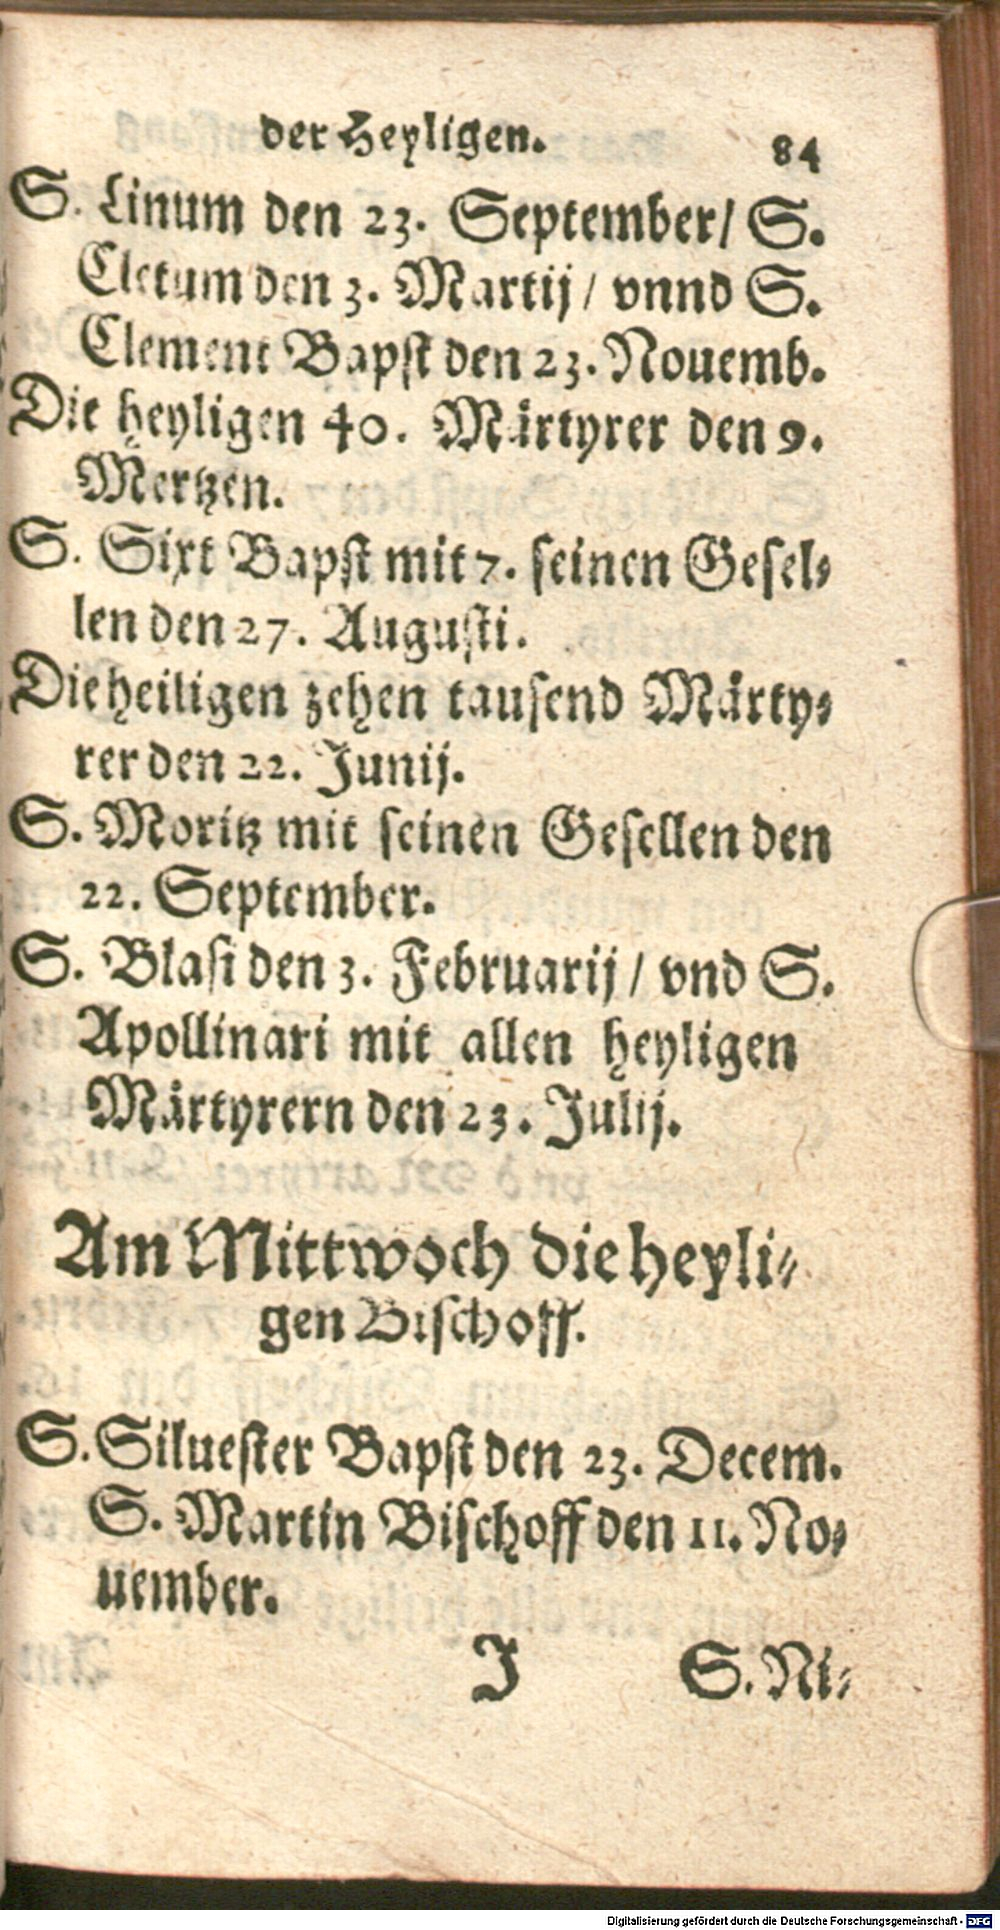 der Heyligen. 84
S. Linum den 23. September/ S.
Cletum den 3. Martij / vnnd S.
Clement Bapst den 23. Nouemb.
Die heyligen 40. Märtyrer den 9.
Mertzen.
S. Sixt Bapst mit 7. seinen Gesel⸗
len den 27. Augusti.
Die heiligen zehen tausend Märty⸗
rer den 22. Junij.
S. Moritz mit seinen Gesellen den
22. September.
S. Blasi den 3. Februarij / vnd S.
Apollinari mit allen heyligen
Märtyrern den 23. Julij.
Am Mittwoch die heyli⸗
gen Bischoff.
S. Siluester Bapst den 23. Decem.
S. Martin Bischoff den 11. No⸗
uember.
J S. Ni⸗
Digitalisierung gefördert durch die Deutsche Forschungsgemeinschaft - DFG